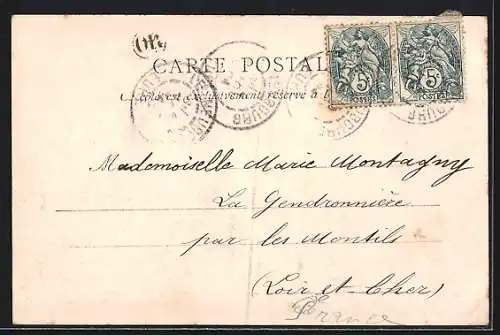 CARTE POSTALE
5c 5c
POSTES POSTES
Ce côté est exclusivement réservé à l
Mademoiselle Marie Montagny
La Gendronnière
par les Montils
(Loir et Cher)
France